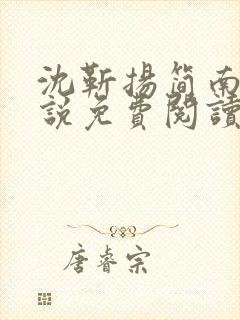 沈靳揚簡南
說免費閱讀
唐睿宗